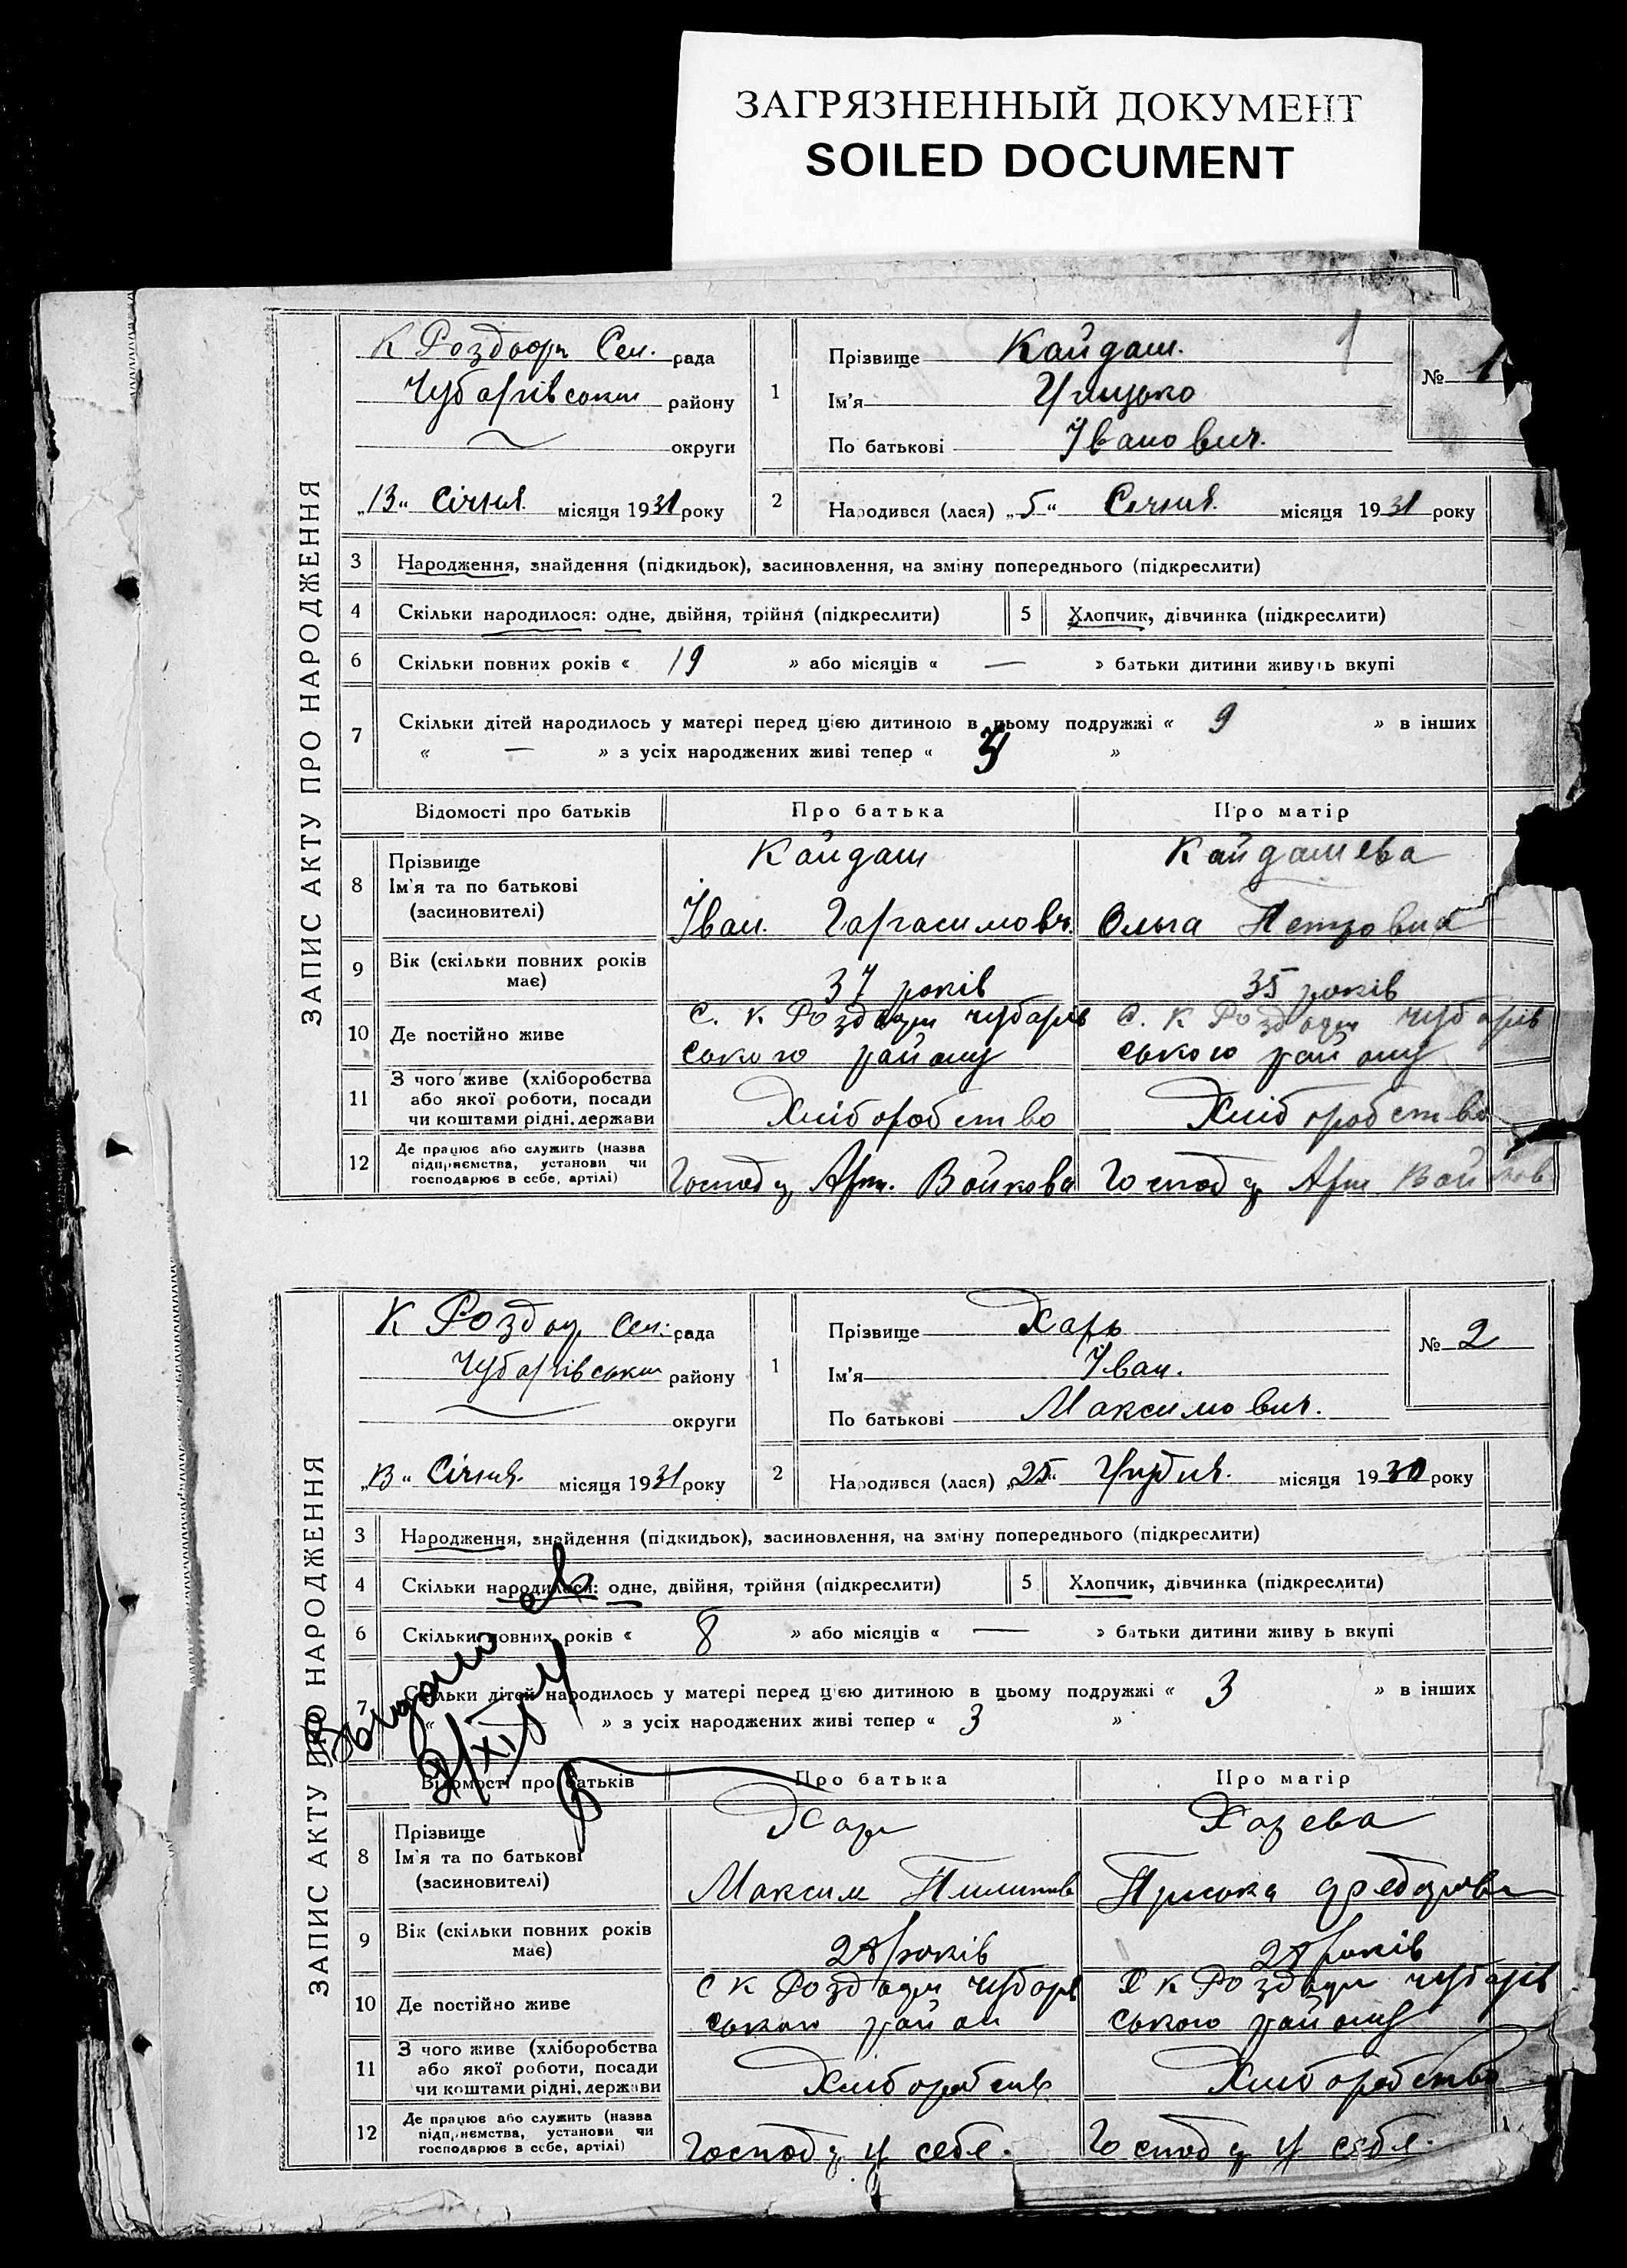 ЗАГРЯЗНЕННЫЙ ДОКУМЕНТ
SOILED DOCUMENT
ЗАПИС АКТУ ПРО НАРОДЖЕННЯ
К Роздори Сел. рада
Чубарівськ району
округи
„13“ Січня місяця 1931 року
1
Прізвище Кайдаш.
Ім'я Грицько
По батькові Іванович.
№ 1
2 Народився (лася) „5“ Січня місяця 1931 року
3 Народження, знайдення (підкидьок), засиновлення, на зміну попереднього (підкреслити)
4 Скільки народилося: одне, двійня, трійня (підкреслити) 5 Хлопчик, дівчинка (підкреслити)
6 Скільки повних років « 19 » або місяців « — » батьки дитини живуть вкупі
7 Скільки дітей народилось у матері перед цією дитиною в цьому подружжі « 9 » в інших
« — » з усіх народжених живі тепер « »
Відомості про батьків Про батька Про матір
8 Прізвище Ім'я та по батькові (засиновителі)
Кайдаш Кайдашева
Іван Гарасимовч. Ольга Петровна
9 Вік (скільки повних років має) 37 років 35 років
10 Де постійно живе
С. К Роздори чубарів С. К Роздори чубарів
ського району ського району
11 З чого живе (хліборобства
або якої роботи, посади
чи коштами рідні, держави
Хліборобство Хліборобство
12 Де працює або служить (назва
підприємства, установи чи
господарює в себе, артілі)
Господ. Арт. Войкова Господ. Арт Войков
ЗАПИС АКТУ ПРО НАРОДЖЕННЯ
К Роздор Сел. рада
Чубарівськ району
округи
„13“ Січня. місяця 1931 року
1
Прізвище Харь
Ім'я Іван.
По батькові Максимович.
№ 2
2 Народився (лася) „25“ Грудня. місяця 1930 року
3 Народження, знайдення (підкидьок), засиновлення, на зміну попереднього (підкреслити)
4 Скільки народилося: одне, двійня, трійня (підкреслити) 5 Хлопчик, дівчинка (підкреслити)
6 Скільки повних років « 8 » або місяців « — » батьки дитини живу ь вкупі
7 Скільки дітей народилось у матері перед цією дитиною в цьому подружжі « 3 » в інших
« » з усіх народжених живі тепер « 3 »
Відомості про батьків Про батька Про матір
8 Прізвище Ім'я та по батькові (засиновителі)
Харь Харева
Максим Пилипов Приська Федорівн
9 Вік (скільки повних років має) років років
10 Де постійно живе
С К Роздори чубарів С К Роздори чубарів
ського район ського району
11 З чого живе (хліборобства
або якої роботи, посади
чи коштами рідні, держави
Хліборобств Хліборобство
12 Де працює або служить (назва
підприємства, установи чи
господарює в себе, артілі)
Господ. у себе. Господ. у себе.